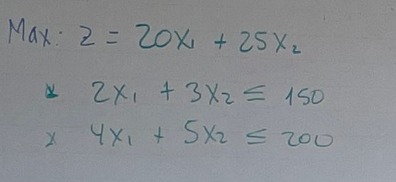 Max: Z = 20x₁ + 25x₂
x 2x₁ + 3x₂ ≤ 150
x 4x₁ + 5x₂ ≤ 200